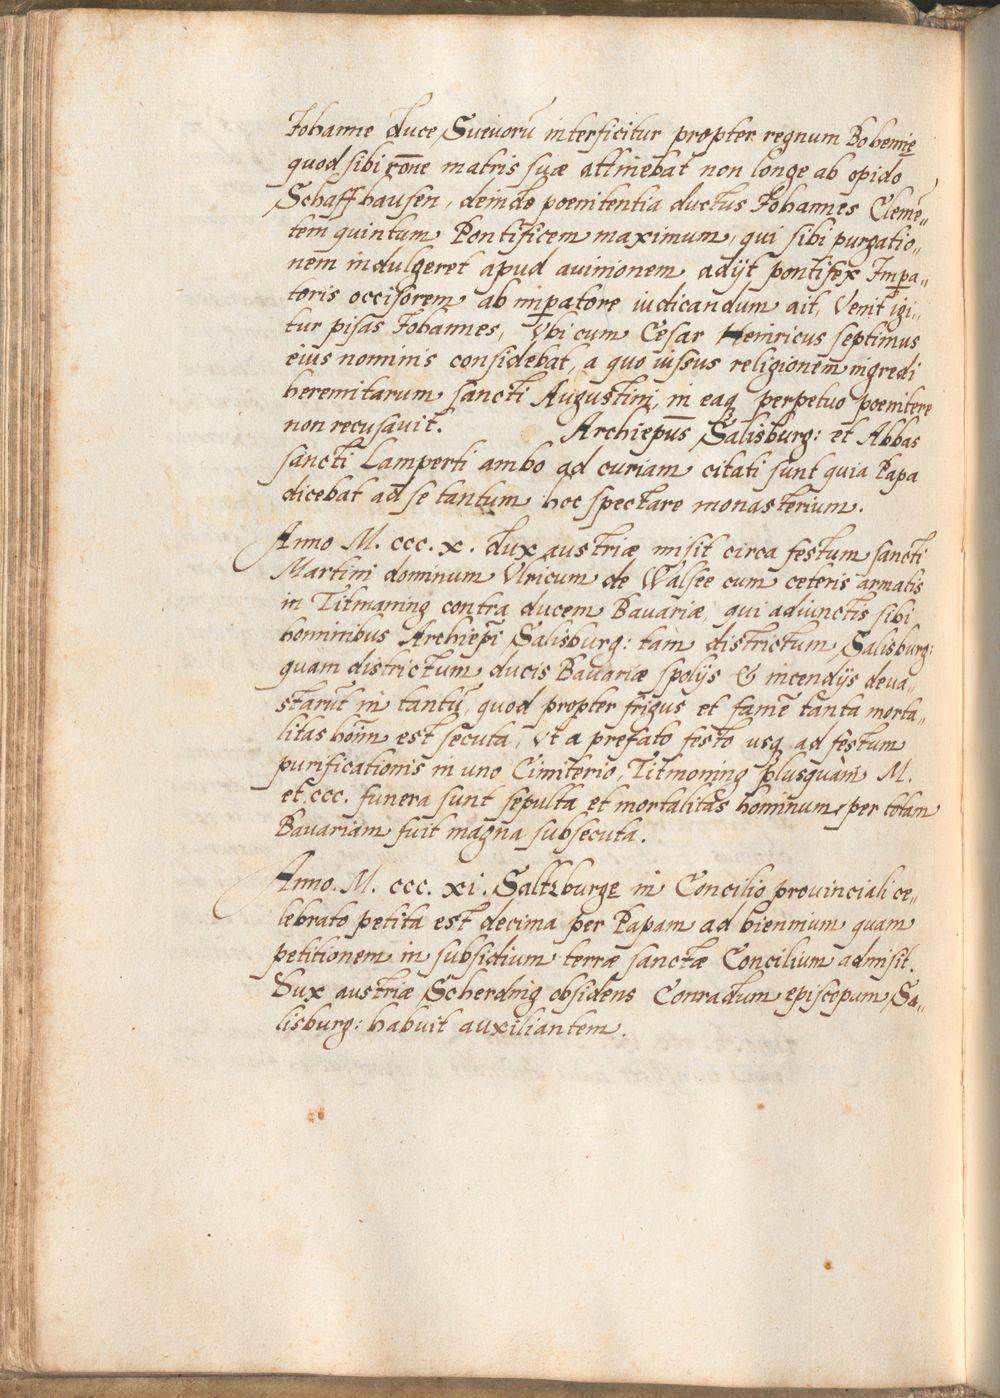 Johanne duce Suevorū interficitur propter regnum Bohemię
quod sibi rōne matris suæ attinebat non longe ab opido
Schaffhausen, deinde poenitentia ductus Johannes Clemē„
tem quintum Pontificem maximum, qui sibi purgatio„
nem indulgeret apud avinionem adijt pontifex Impa„
toris occisorem ab impatore iudicandum ait, Venit igi„
tur pisas Johannes, Vbi cum Cesar Heinricus septimus
eius nominis considebat, a quo iussus religionem ingredi
heremitarum sancti Augustini, in eaq̨ perpetuo poenitere
non recusavit. Archiep̄us Salisburg: et Abbas
sancti Lamperti ambo ad curiam citati sunt quia Papa
dicebat ad se tantum hoc spectare monasterium.
Anno M. ccc. x. dux austriæ misit circa festum sancti
Martini dominum Vlricum de Walsee cum ceteris armatis
in Titmaning contra ducem Bavariæ, qui adiunctis sibi
hominibus Archiep̄i Salisburg: tam districtum Salisburg:
quam districtum ducis Bavariæ spolijs & incendijs deva„
starūt in tantū, quod propter frigus et famē tanta morta„
litas hōim est secuta, Vt a prefato festo usq̨ ad festum
purificationis in uno Cimiterio, Titmoning plusquàm M.
et ccc. funera sunt sepulta et mortalitas hominum per totam
Bavariam fuit magna subsecuta.
Anno. M. ccc. xi. Saltzburge in Concilio provinciali ce„
lebrato petita est decima per Papam ad biennium quam
petitionem in subsidium terræ sanctæ Concilium admisit.
Dux austriæ Scherding obsidens Conradum episcopum Sa„
lisburg: habuit auxiliantem.